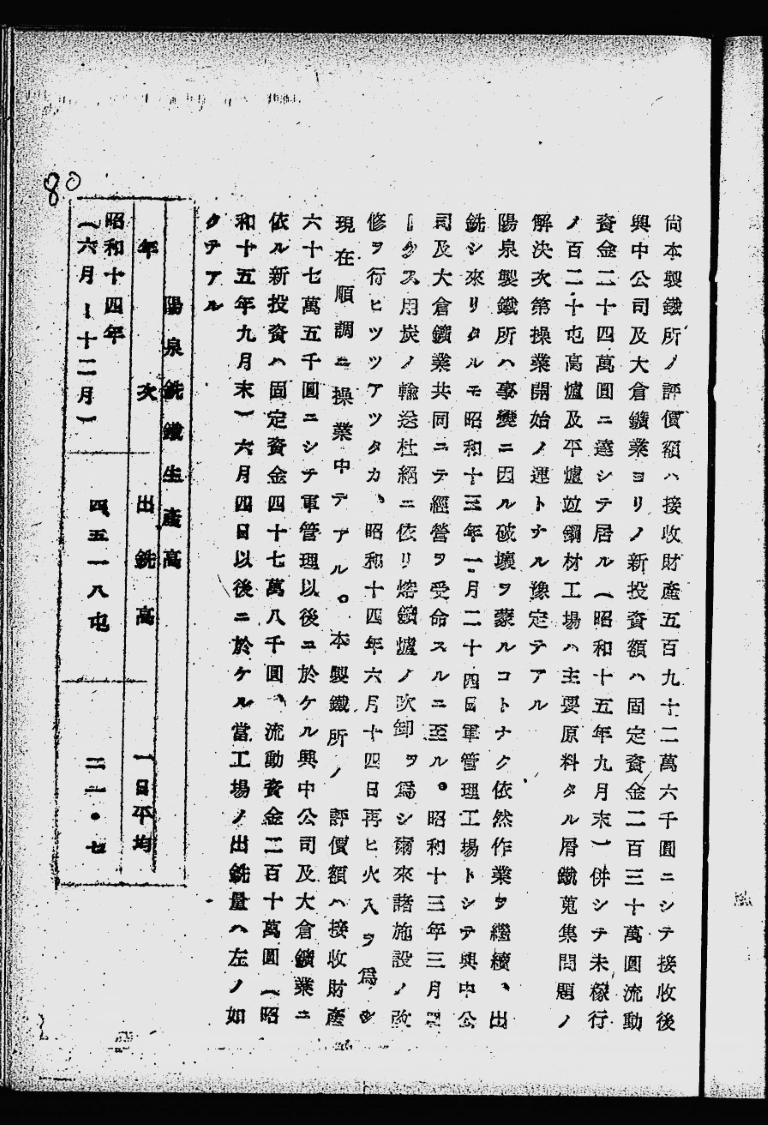 尚本製鐵所ノ評價額ハ接收財產五百九十二萬六千圓ニシテ接收後
興中公司及大倉鑛業ヨリノ新投資額ハ固定資金二百三十萬圓流動
資金二十四萬圓ニ達シテ居ル(昭和十五年九月末)併シテ未稼行
ノ百二十屯高爐及平爐竝鋼材工場ハ主要原料タル屑鐵蒐集問題ノ
解決次第操業開始ノ運トナル豫定デアル
陽泉製鐵所ハ事變ニ因ル破壞ヲ蒙ルコトナク依然作業ヲ繼續、出
銑シ來リタルモ昭和十三年一月二十四日軍管理工場トシテ興中公
司及大倉鑛業共同ニテ經營ヲ受命スルニ至ル。昭和十三年三月
ークス用炭ノ輸送杜絕ニ依リ熔鑛爐ノ吹卸ヲ爲シ爾來諸施設ノ改
修ヲ行ヒツツアツタカ、昭和十四年六月十四日再ヒ火入ヲ爲シ
現在順調ニ操業中デアル。本製鐵所ノ評價額ハ接收財產
六十七萬五千圓ニシテ軍管理以後ニ於ケル興中公司及大倉鑛業ニ
依ル新投資ハ固定資金四十七萬八千圓、流動資金二百十萬圓(昭
和十五年九月末)六月四日以後ニ於ケル當工場ノ出銑量ハ左ノ如
クデアル
陽泉銑鐵生產高
年次 出銑高 一日平均
昭和十四年
(六月ー十二月) 四五一八屯 二一・七
80